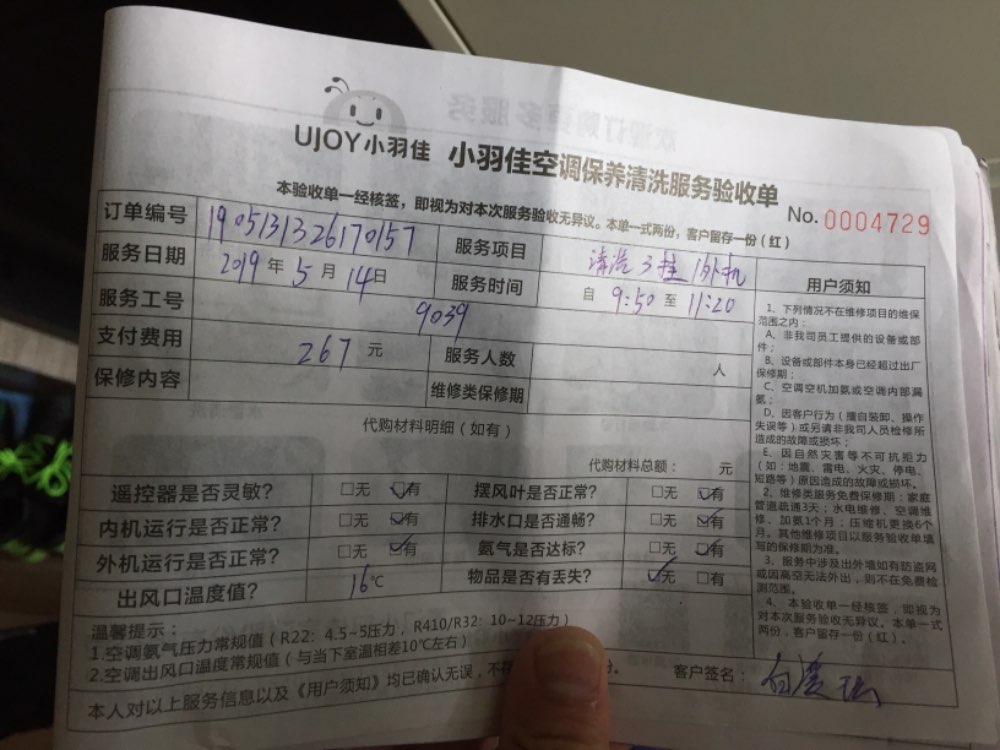 UJOY小羽佳 小羽佳空调保养清洗服务验收单
本验收单一经核签，即视为对本次服务验收无异议。本单一式两份，客户留存一份（红）
No. 0004729
订单编号 1905131326170157 服务项目 清洗3挂1外机
服务日期 2019 年 5 月 14 日 服务时间 自 9:50 至 11:20
服务工号 9039
支付费用 267 元 服务人数 人
保修内容 维修类保修期
代购材料明细（如有）
代购材料总额： 元
遥控器是否灵敏？ □无 ☑有 摆风叶是否正常？ □无 ☑有
内机运行是否正常？ □无 ☑有 排水口是否通畅？ □无 ☑有
外机运行是否正常？ □无 ☑有 氨气是否达标？ □无 ☑有
出风口温度值？ 16℃ 物品是否有丢失？ ☑无 □有
温馨提示：
1.空调氨气压力常规值（R22：4.5~5压力，R410/R32：10~12压力）
2.空调出风口温度常规值（与当下室温相差10℃左右）
本人对以上服务信息以及《用户须知》均已确认无误，不存 份。
客户签名：
用户须知
1、下列情况不在维修项目的维保
范围之内：
A、非我司员工提供的设备或部
件；
B、设备或部件本身已经超过出厂
保修期；
C、空调空机加氨或空调内部漏
氨；
D、因客户行为（擅自装卸、操作
失误等）或另请非我司人员检修所
造成的故障或损坏；
E、因自然灾害等不可抗拒力
（如：地震、雷电、火灾、停电、
短路等）原因造成的故障或损坏。
2、维修类服务免费保修期：家庭
管道疏通3天；水电维修、空调维
修、加氨1个月；压缩机更换6个
月。其他维修项目以服务验收单填
写的保修期为准。
3、服务中涉及出外墙如有防盗网
或因高空无法外出，则不在免费检
测范围。
4、本验收单一经核签，即视为
对本次服务验收无异议。本单一式
两份，客户留存一份（红）。